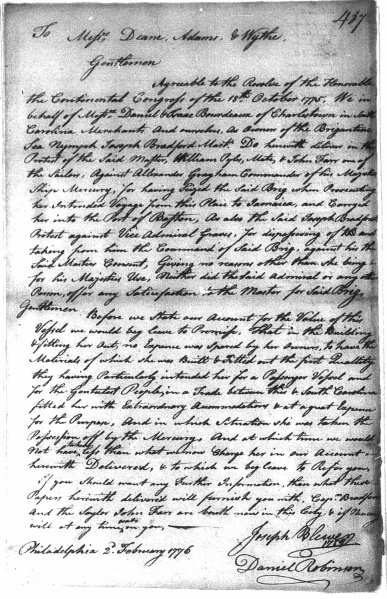 437
To Messrs. Deane, Adams, & Wythe.
Gentlemen
Agreable to the Resolve of the Honorable
the Continental Congress of the 18th October 1775, We in
behalf of Messrs. Daniel & Isaac Bourdeaux of Charlestown in South
Carolina Merchants And ourselves, as Owners of the Brigantine
Sea Nymph Joseph Bradford Mastr. Do herewith deliver in the
Protest of the Said Master, William Pyle, Mate, & John Farr one of
the Sailors. Against Allexander Graeham Commander of his Majestys
Ship Mercury, for having Seized the Said Brig when Prosecuting
her Intended Voyage from this Place to Jamaica, and Carryed
her into the Port of Boston, As also the Said Joseph Bradfords
Protest against Vice Admiral Graves. For dispossessing of and
taking from him the Command of Said Brig, against his the
Said Masters Consent, Giveing no reasons other than She being
for his Majestys Use, Neither did the Said Admiral or any other
Person, offer any Satisfaction to the Master for Said Brig
Gentlemen.
Before we State our Account for the Value of this
Vessel we would beg leave to Premise, That in the Building
& fitting her Out, no Expence was Spared by her Owners, to have the
Materials of which she was Built & Fitted out the first Quality
they having Particularly intended her for a Passenger Vessel and
for the Genteelest People, in a Trade between this & South Carolina
fitted her with Extraordinary Accomodations & at a great Expence
for the Purpose, And in which Situation she was taken the
Possession off by the Mercury, And at which time we would
Not have taken less than what we now Charge her in our Account
herewith Delivered, & to which we beg leave to Refer you,
if you Should want any Further Information, then what these
Papers herewith delivered will furnish you with, Capn. Bradford
And the Saylor John Farr are both now in this City, & if Necessary
will at any time wait on you,
Joseph Blewer
Philadelphia 2d February 1776
Daniel Robinson